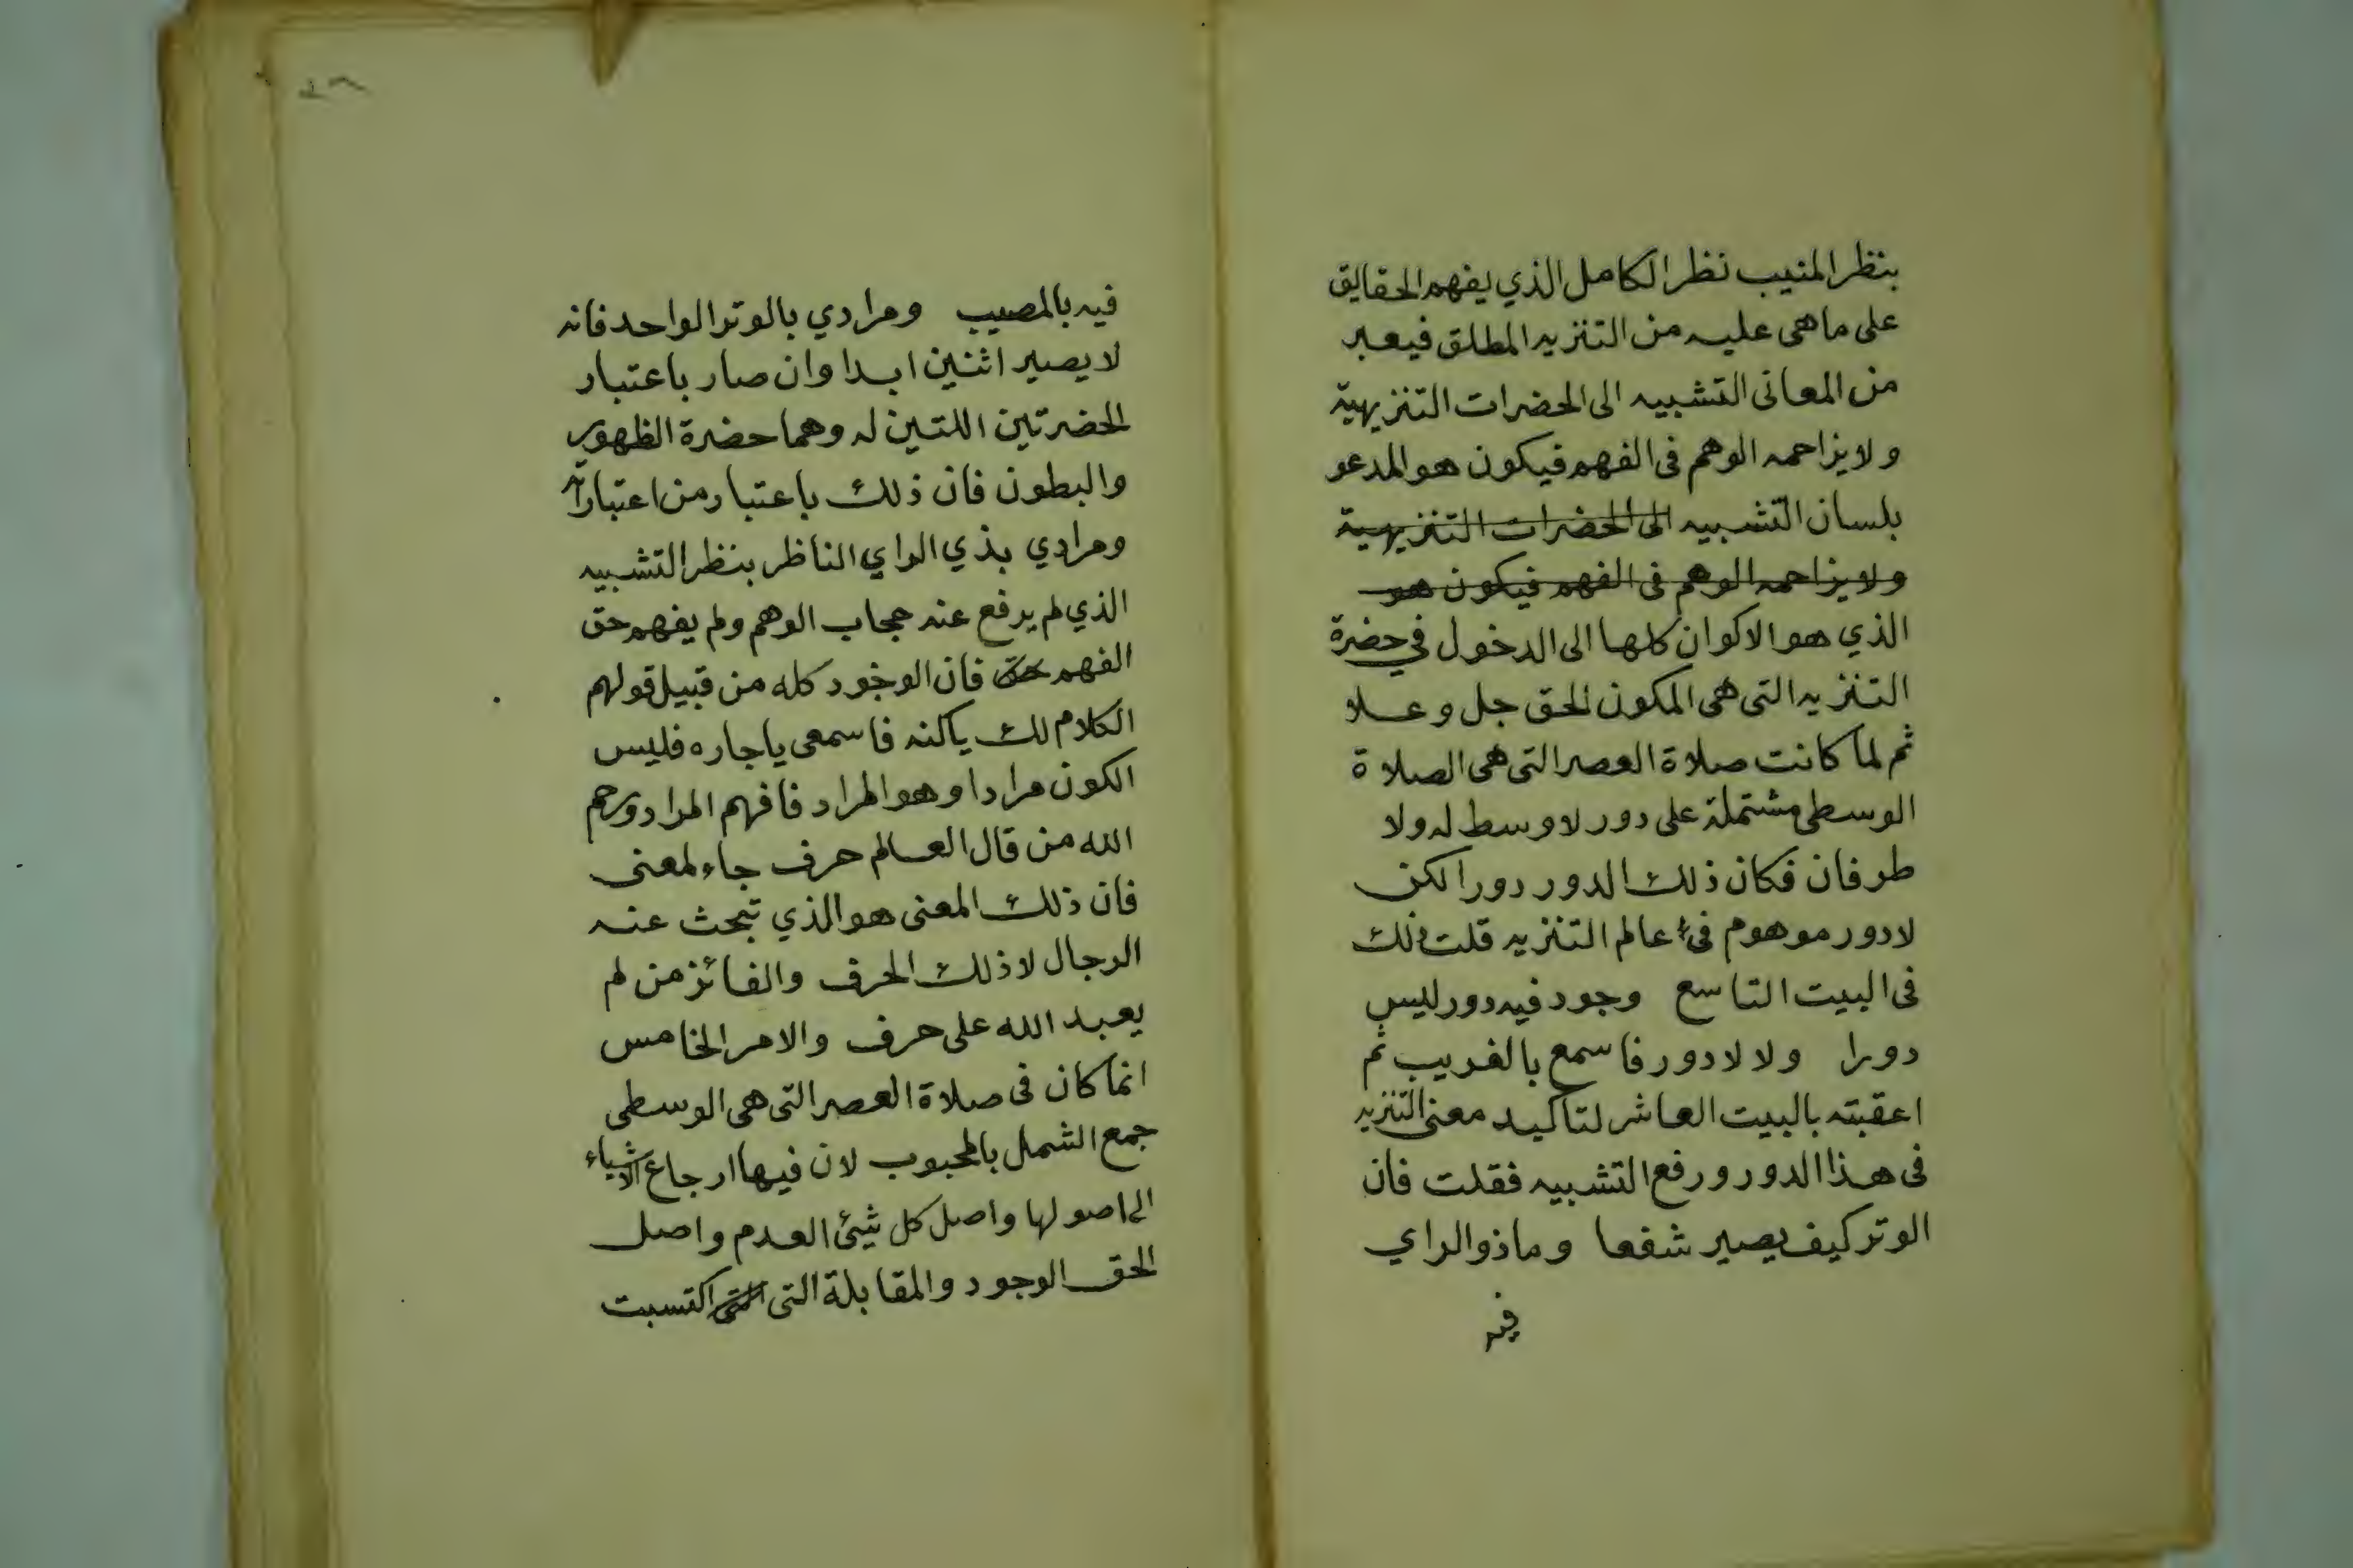 بنظر المنيب نظر الكامل الذي يفهم الحقايق
على ما هى عليه من التنزيه المطلق فيعبر
من المعانى التشبيه الى الحضرات التنزيهية
ولا يزاحمه الوهم فى الفهم فيكون هو المدعو
بلسان التشبيه الى الحضرات التنزيهية
ولا يزاحمه الوهم فى الفهم فيكون هو
الذي هو الاكوان كلها الى الدخول في حضرة
التنزيه التى هى المكون الحق جل وعلا
ثم لما كانت صلاة العصر التى هى الصلاة
الوسطى مشتملة على دور لا وسط له ولا
طرفان فكان ذلك الدور دورا لكن
لا دور موهوم فى عالم التنزيه قلت ذلك
فى البيت التاسع وجود فيه دور ليس
دورا ولا لا دور فاسمع بالغريب ثم
اعقبته بالبيت العاشر لتاكيد معنى التنزيه
فى هذا الدور ورفع التشبيه فقلت فان
الوتر كيف يصير شفعا وما ذو الراي
فيه
فيه بالمصيب ومرادي بالوتر الواحد فانه
لا يصير اثنين ابدا وان صار باعتبار
الحضرتين اللتين له وهما حضرة الظهور
والبطون فان ذلك باعتبار من اعتباراته
ومرادي بذي الراي الناظر بنظر التشبيه
الذي لم يرفع عنه حجاب الوهم ولم يفهم حق
الفهم حق فان الوجود كله من قبيل قولهم
الكلام لك ياكنه فاسمعى ياجاره فليس
الكون مرادا وهو المراد فافهم المراد ورحم
الله من قال العالم حرف جاء لمعنى
فان ذلك المعنى هو الذي تبحث عنه
الرجال لا ذلك الحرف والفائز من لم
يعبد الله على حرف والامر الخامس
انما كان فى صلاة العصر التى هى الوسطى
جمع الشمل بالمحبوب لان فيها ارجاع الاشياء
الى اصولها واصل كل شيئ العدم واصل
الحق الوجود والمقابلة التى التى اكتسبت